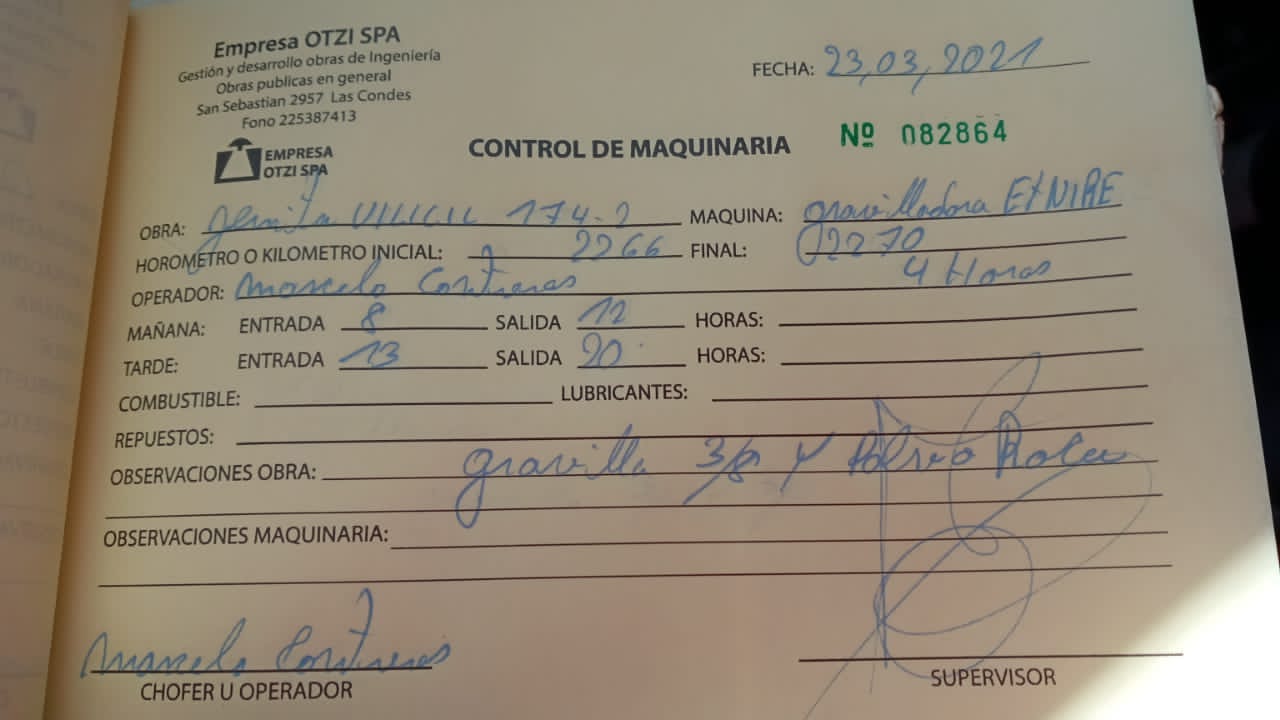 Empresa OTZI SPA
Gestión y desarrollo obras de Ingeniería
Obras publicas en general
San Sebastian 2957 Las Condes
Fono 225387413
EMPRESA
OTZI SPA
FECHA: 23,03,2021
CONTROL DE MAQUINARIA Nº 082864
OBRA: 174-2 MAQUINA: gravilladora
HOROMETRO O KILOMETRO INICIAL: 2266 FINAL: 02270
4 Horas
OPERADOR: Marcelo Contreras
MAÑANA: ENTRADA 8 SALIDA 12 HORAS:
TARDE: ENTRADA 13 SALIDA 20 HORAS:
COMBUSTIBLE: LUBRICANTES:
REPUESTOS:
OBSERVACIONES OBRA: gravilla 3/8 y Polvo Roca
OBSERVACIONES MAQUINARIA:
Marcelo Contreras
CHOFER U OPERADOR
SUPERVISOR